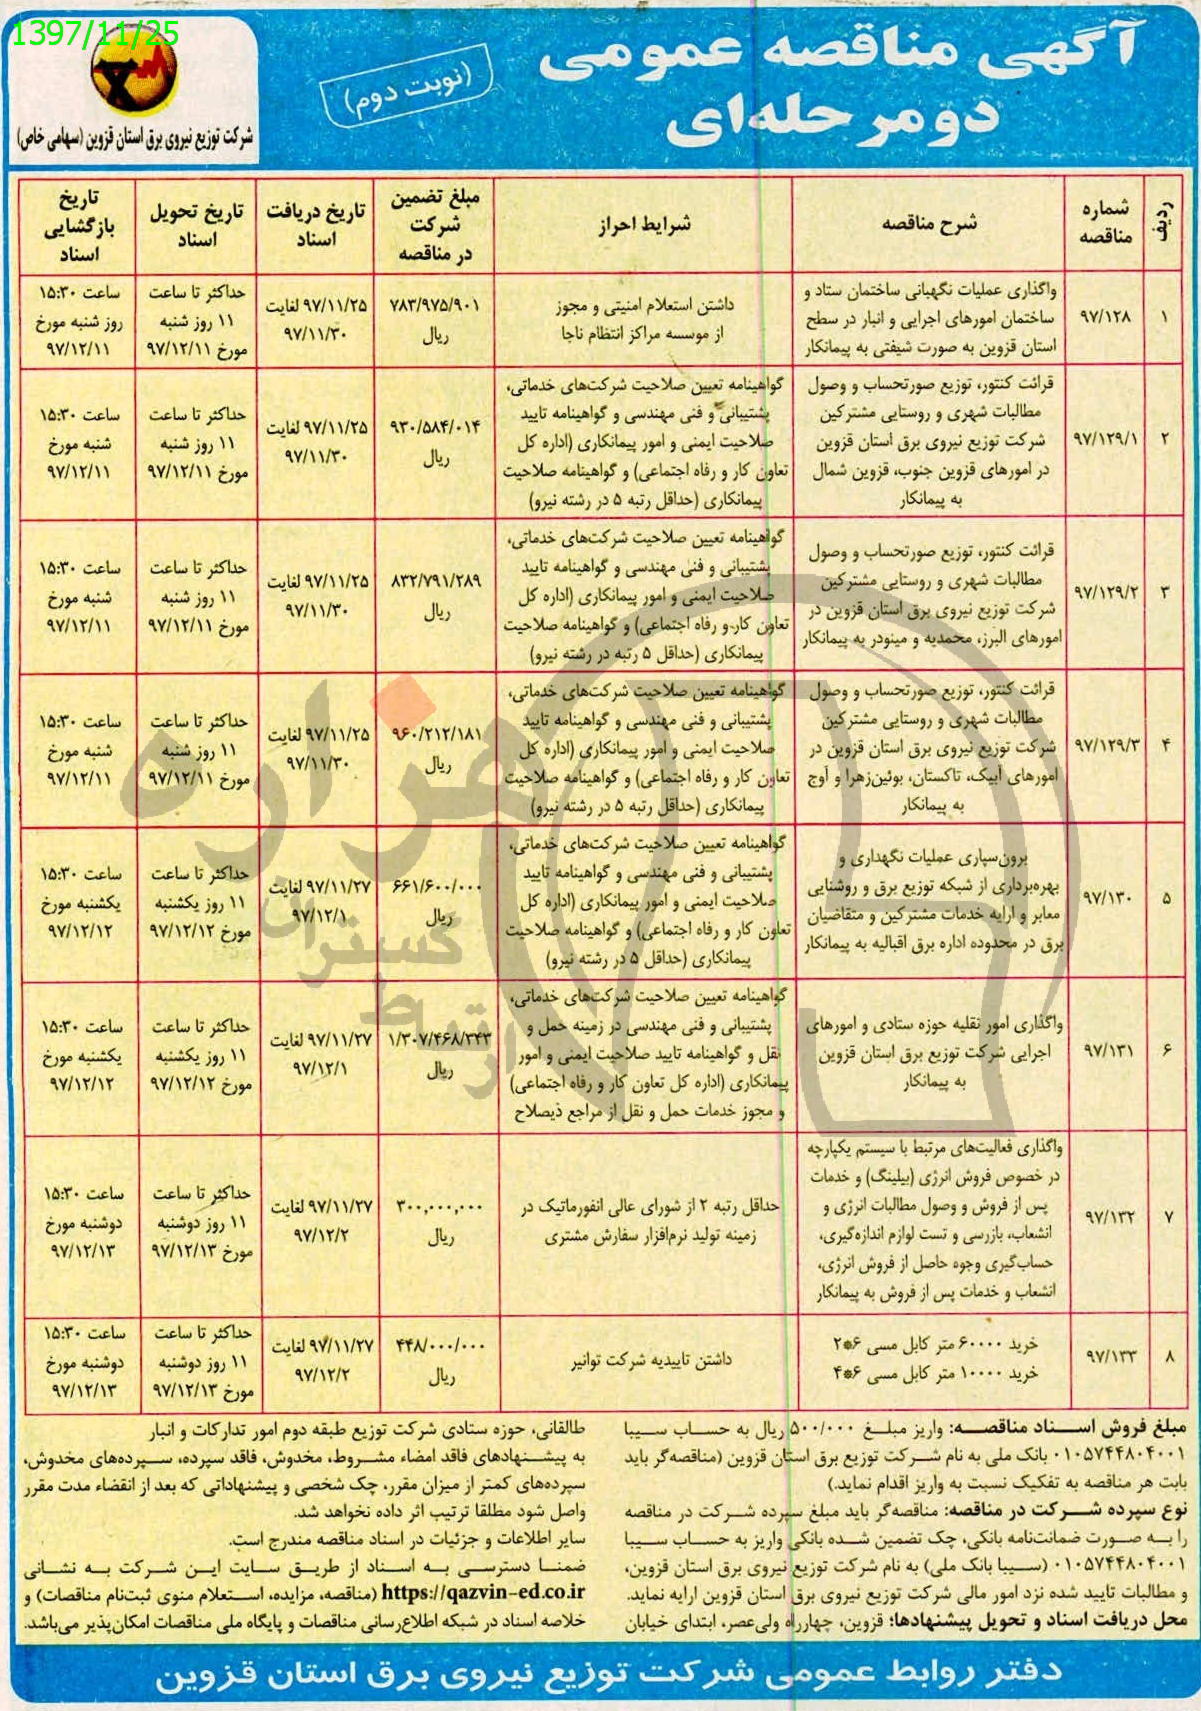 1397/11/25
آگهی مناقصه عمومی
دو مرحله‌ای
(نوبت دوم)
شرکت توزیع نیروی برق استان قزوین (سهامی خاص)
ردیف
شماره
مناقصه
شرح مناقصه
شرایط احراز
مبلغ تضمین
شرکت
در مناقصه
تاریخ دریافت
اسناد
تاریخ تحویل
اسناد
تاریخ
بازگشایی
اسناد
۱
۹۷/۱۲۸
واگذاری عملیات نگهبانی ساختمان ستاد و
ساختمان امورهای اجرایی و انبار در سطح
استان قزوین به صورت شیفتی به پیمانکار
داشتن استعلام امنیتی و مجوز
از موسسه مراکز انتظام ناجا
۷۸۳/۹۷۵/۹۰۱
ریال
۹۷/۱۱/۲۵ لغایت
۹۷/۱۱/۳۰
حداکثر تا ساعت
۱۱ روز شنبه
مورخ ۹۷/۱۲/۱۱
ساعت ۱۵:۳۰
روز شنبه مورخ
۹۷/۱۲/۱۱
۲
۹۷/۱۲۹/۱
قرائت کنتور، توزیع صورتحساب و وصول
مطالبات شهری و روستایی مشترکین
شرکت توزیع نیروی برق استان قزوین
در امورهای قزوین جنوب، قزوین شمال
به پیمانکار
گواهینامه تعیین صلاحیت شرکت‌های خدماتی،
پشتیبانی و فنی مهندسی و گواهینامه تایید
صلاحیت ایمنی و امور پیمانکاری (اداره کل
تعاون کار و رفاه اجتماعی) و گواهینامه صلاحیت
پیمانکاری (حداقل رتبه ۵ در رشته نیرو)
۹۳۰/۵۸۴/۰۱۴
ریال
۹۷/۱۱/۲۵ لغایت
۹۷/۱۱/۳۰
حداکثر تا ساعت
۱۱ روز شنبه
مورخ ۹۷/۱۲/۱۱
ساعت ۱۵:۳۰
شنبه مورخ
۹۷/۱۲/۱۱
۳
۹۷/۱۲۹/۲
قرائت کنتور، توزیع صورتحساب و وصول
مطالبات شهری و روستایی مشترکین
شرکت توزیع نیروی برق استان قزوین در
امورهای البرز، محمدیه و مینودر به پیمانکار
گواهینامه تعیین صلاحیت شرکت‌های خدماتی،
پشتیبانی و فنی مهندسی و گواهینامه تایید
صلاحیت ایمنی و امور پیمانکاری (اداره کل
تعاون کار و رفاه اجتماعی) و گواهینامه صلاحیت
پیمانکاری (حداقل ۵ رتبه در رشته نیرو)
۸۳۲/۷۹۱/۲۸۹
ریال
۹۷/۱۱/۲۵ لغایت
۹۷/۱۱/۳۰
حداکثر تا ساعت
۱۱ روز شنبه
مورخ ۹۷/۱۲/۱۱
ساعت ۱۵:۳۰
شنبه مورخ
۹۷/۱۲/۱۱
۴
۹۷/۱۲۹/۳
قرائت کنتور، توزیع صورتحساب و وصول
مطالبات شهری و روستایی مشترکین
شرکت توزیع نیروی برق استان قزوین در
امورهای آبیک، تاکستان، بوئین‌زهرا و آوج
به پیمانکار
گواهینامه تعیین صلاحیت شرکت‌های خدماتی،
پشتیبانی و فنی مهندسی و گواهینامه تایید
صلاحیت ایمنی و امور پیمانکاری (اداره کل
تعاون کار و رفاه اجتماعی) و گواهینامه صلاحیت
پیمانکاری (حداقل رتبه ۵ در رشته نیرو)
۹۶۰/۲۱۲/۱۸۱
ریال
۹۷/۱۱/۲۵ لغایت
۹۷/۱۱/۳۰
حداکثر تا ساعت
۱۱ روز شنبه
مورخ ۹۷/۱۲/۱۱
ساعت ۱۵:۳۰
شنبه مورخ
۹۷/۱۲/۱۱
۵
۹۷/۱۳۰
برون‌سپاری عملیات نگهداری و
بهره‌برداری از شبکه توزیع برق و روشنایی
معابر و ارایه خدمات مشترکین و متقاضیان
برق در محدوده اداره برق اقبالیه به پیمانکار
گواهینامه تعیین صلاحیت شرکت‌های خدماتی،
پشتیبانی و فنی مهندسی و گواهینامه تایید
صلاحیت ایمنی و امور پیمانکاری (اداره کل
تعاون کار و رفاه اجتماعی) و گواهینامه صلاحیت
پیمانکاری (حداقل ۵ در رشته نیرو)
۶۶۱/۶۰۰/۰۰۰
ریال
۹۷/۱۱/۲۷ لغایت
۹۷/۱۲/۱
حداکثر تا ساعت
۱۱ روز یکشنبه
مورخ ۹۷/۱۲/۱۲
ساعت ۱۵:۳۰
یکشنبه مورخ
۹۷/۱۲/۱۲
۶
۹۷/۱۳۱
واگذاری امور نقلیه حوزه ستادی و امورهای
اجرایی شرکت توزیع برق استان قزوین
به پیمانکار
گواهینامه تعیین صلاحیت شرکت‌های خدماتی،
پشتیبانی و فنی مهندسی در زمینه حمل و
نقل و گواهینامه تایید صلاحیت ایمنی و امور
پیمانکاری (اداره کل تعاون کار و رفاه اجتماعی)
و مجوز خدمات حمل و نقل از مراجع ذیصلاح
۱/۳۰۷/۴۶۸/۳۴۳
ریال
۹۷/۱۱/۲۷ لغایت
۹۷/۱۲/۱
حداکثر تا ساعت
۱۱ روز یکشنبه
مورخ ۹۷/۱۲/۱۲
ساعت ۱۵:۳۰
یکشنبه مورخ
۹۷/۱۲/۱۲
۷
۹۷/۱۳۲
واگذاری فعالیت‌های مرتبط با سیستم یکپارچه
در خصوص فروش انرژی (بیلینگ) و خدمات
پس از فروش و وصول مطالبات انرژی و
انشعاب، بازرسی و تست لوازم اندازه‌گیری،
حساب‌گیری وجوه حاصل از فروش انرژی،
انشعاب و خدمات پس از فروش به پیمانکار
حداقل رتبه ۲ از شورای عالی انفورماتیک در
زمینه تولید نرم‌افزار سفارش مشتری
۳۰۰,۰۰۰,۰۰۰
ریال
۹۷/۱۱/۲۷ لغایت
۹۷/۱۲/۲
حداکثر تا ساعت
۱۱ روز دوشنبه
مورخ ۹۷/۱۲/۱۳
ساعت ۱۵:۳۰
دوشنبه مورخ
۹۷/۱۲/۱۳
۸
۹۷/۱۳۳
خرید ۶۰۰۰۰ متر کابل مسی ۶*۲
خرید ۱۰۰۰۰ متر کابل مسی ۶*۴
داشتن تاییدیه شرکت توانیر
۴۴۸/۰۰۰/۰۰۰
ریال
۹۷/۱۱/۲۷ لغایت
۹۷/۱۲/۲
حداکثر تا ساعت
۱۱ روز دوشنبه
مورخ ۹۷/۱۲/۱۳
ساعت ۱۵:۳۰
دوشنبه مورخ
۹۷/۱۲/۱۳
مبلغ فروش اسناد مناقصه: واریز مبلغ ۵۰۰/۰۰۰ ریال به حساب سیبا
۰۱۰۵۷۴۴۸۰۴۰۰۱ بانک ملی به نام شرکت توزیع برق استان قزوین (مناقصه‌گر باید
بابت هر مناقصه به تفکیک نسبت به واریز اقدام نماید.)
نوع سپرده شرکت در مناقصه: مناقصه‌گر باید مبلغ سپرده شرکت در مناقصه
را به صورت ضمانت‌نامه بانکی، چک تضمین شده بانکی واریز به حساب سیبا
۰۱۰۵۷۴۴۸۰۴۰۰۱ (سیبا بانک ملی) به نام شرکت توزیع نیروی برق استان قزوین،
و مطالبات تایید شده نزد امور مالی شرکت توزیع نیروی برق استان قزوین ارایه نماید.
محل دریافت اسناد و تحویل پیشنهادها: قزوین، چهارراه ولی‌عصر، ابتدای خیابان
طالقانی، حوزه ستادی شرکت توزیع طبقه دوم امور تدارکات و انبار
به پیشنهادهای فاقد امضاء مشروط، مخدوش، فاقد سپرده، سپرده‌های مخدوش،
سپرده‌های کمتر از میزان مقرر، چک شخصی و پیشنهاداتی که بعد از انقضاء مدت مقرر
واصل شود مطلقا ترتیب اثر داده نخواهد شد.
سایر اطلاعات و جزئیات در اسناد مناقصه مندرج است.
ضمنا دسترسی به اسناد از طریق سایت این شرکت به نشانی
https://qazvin-ed.co.ir (مناقصه، مزایده، استعلام منوی ثبت‌نام مناقصات) و
خلاصه اسناد در شبکه اطلاع‌رسانی مناقصات و پایگاه ملی مناقصات امکان‌پذیر می‌باشد.
دفتر روابط عمومی شرکت توزیع نیروی برق استان قزوین
هزاره
گستران
ارتباط